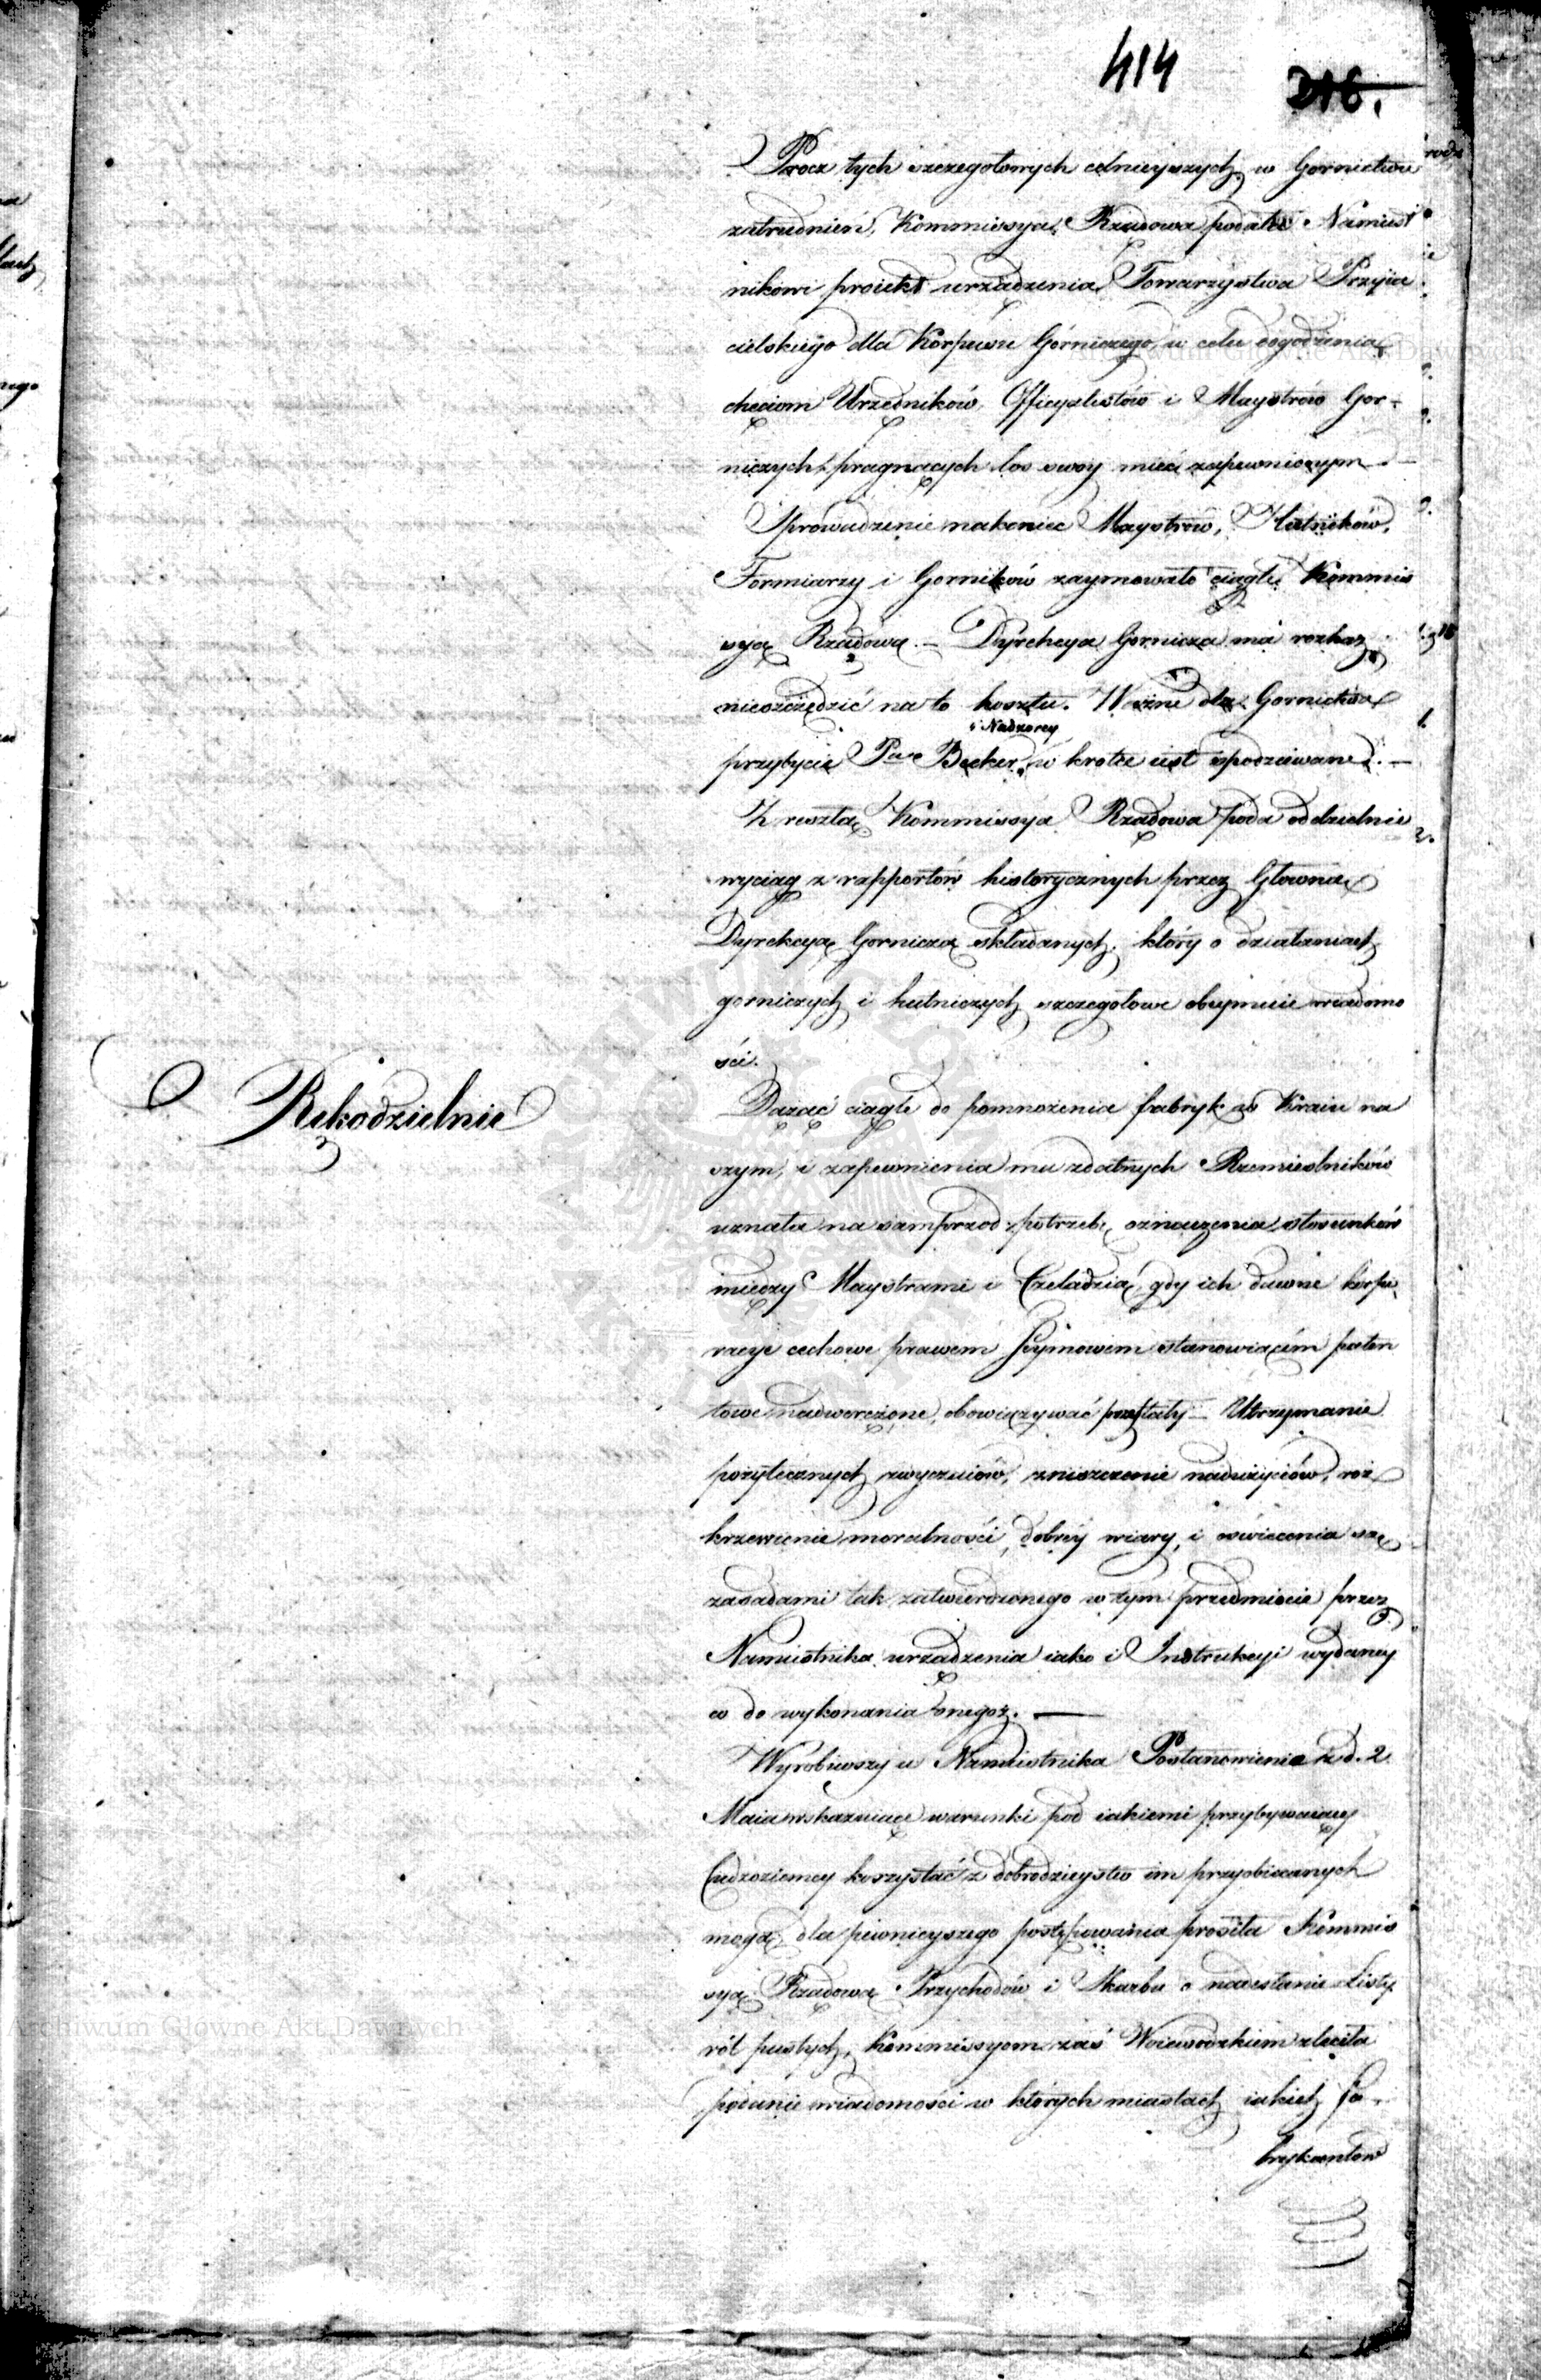 414
216.
Procz tych szczegołowych celnieyszych w Gornictwie
zatrudnień, Kommissya Rządowa podała Namiest
nikowi proiekt urządzenia Towarzystwa Przyia
cielskiego dla Korpusu Górniczego, w celu dogodzenia
chęciom Urzędników, Officyalistów i Maystrów Gor-
niczych, pragnących los swoy mieć zapewnionym.
Sprowadzenie nakoniec Maystrów, Hutników,
Formiarzy i Gorników zaymowało ciągle Kommis
syą Rządową. – Dyrekcya Gornicza ma rozkaz
nieoszczędzić na to kosztu. Ważne dla Gornictwa
i Nadzorcy
przybycie Pa Becker, w krotce iest spodziewane. –
Z resztą Kommissya Rządowa poda oddzielnie
wyciąg z rapportów historycznych przez Głowną
Dyrekcyą Gorniczą składanych, który o działaniach
gorniczych i hutniczych szczegołowe obeymuie wiadomo
ści.
Rękodzielnie
Dążąć ciągle do pomnożenia fabryk w Kraiu na
szym, i zapewnienia mu zdatnych Rzemieslników
uznała na samprzod potrzebę oznaczenia stosunków
między Maystrami i Czeladzią, gdy ich dawne korpo
racye cechowe prawem Seymowem stanowiącem paten
towe nadwerężone, obowiązywać przestały – Utrzymanie
pożytecznych zwyczaiów, zniszczenie nadużyciów, roz
krzewienie moralności, dobréy wiary, i oswiecenia są
zasadami tak zatwierdzonego w tym przedmiocie przez
Namiestnika urządzenia iako i Instrukcyi wydaney
co do wykonania onegoż. —
Wyrobiwszy u Namiestnika Postanowienie z d. 2
Maia wskazuiące warunki pod iakiemi przybywaiący
Cudzoziemcy korzystać z dobrodzieystw im przyobiecanych
mogą, dla pewnieyszego postępowania prosiła Kommis
syą Rządową Przychodów i Skarbu o nadesłanie Listy
ról pustych, Kommissyom zaś Woiewodzkim zleciła
podanie wiadomości w których miastach iakich Fa-
brykantów
Archiwum Główne Akt Dawnych